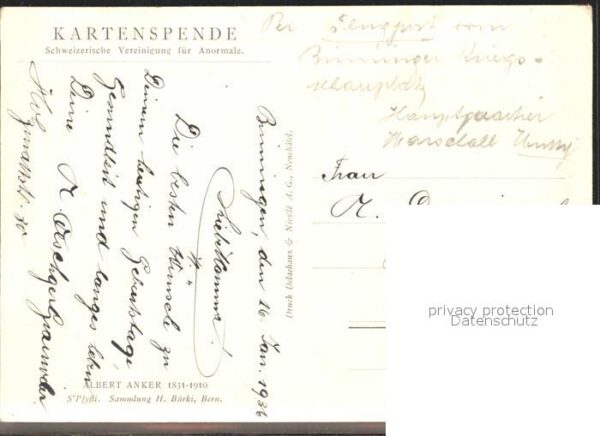 KARTENSPENDE
Schweizerische Vereinigung für Anormale.
Per Flugpost vom
Binninger Kriegs-
schauplatz
Hauptquartier
Marschall
Frau
Binningen, den 16. Jan. 1936
Die besten Wünsche zu
Deinem heutigen Geburtstage,
Gesundheit und langes Leben
Deine
Druck Delachaux & Niestlé A. G., Neuchâtel.
ALBERT ANKER 1831-1910
S'Pfyfli. Sammlung H. Bürki, Bern.
privacy protection
Datenschutz